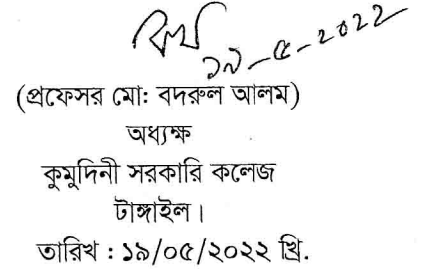 ১৯-৫-২০২২
(প্রফেসর মো: বদরুল আলম)
অধ্যক্ষ
কুমুদিনী সরকারি কলেজ
টাঙ্গাইল।
তারিখ : ১৯/০৫/২০২২ খ্রি.